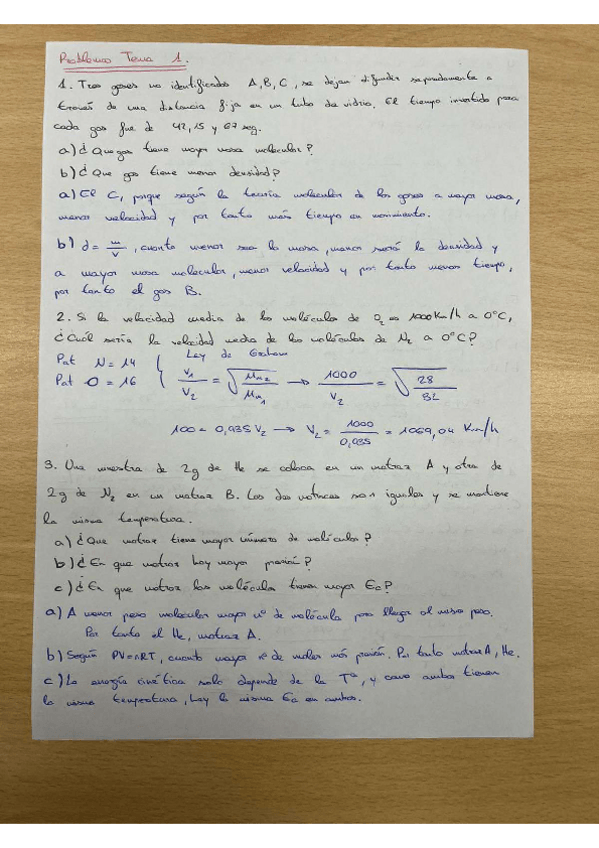 Problemas Tema 1.
1. Tres gases no identificados A, B, C, se dejan difundir separadamente a
través de una distancia fija en un tubo de vidrio. El tiempo invertido para
cada gas fue de 42, 15 y 67 seg.
a) ¿Que gas tiene mayor masa molecular?
b) ¿Que gas tiene menor densidad?
a) El C, porque según la teoría molecular de los gases a mayor masa,
menor velocidad y por tanto más tiempo en movimiento.
b) d = m/V, cuanto menor sea la masa, menor será la densidad y
a mayor masa molecular, menor velocidad y por tanto menos tiempo,
por tanto el gas B.
2. Si la velocidad media de las moléculas de O2 es 1000 Km/h a 0ºC,
¿Cuál sería la velocidad media de las moléculas de N2 a 0ºC?
Pat N = 14 Ley de Graham
Pat O = 16 V1/V2 = √(Mm2/Mm1) → 1000/V2 = √(28/32)
100 = 0,935 V2 → V2 = 1000/0,935 = 1069,04 Km/h
3. Una muestra de 2g de He se coloca en un matraz A y otra de
2g de N2 en un matraz B. Los dos matraces son iguales y se mantiene
la misma temperatura.
a) ¿Que matraz tiene mayor número de moléculas?
b) ¿En que matraz hay mayor presión?
c) ¿En que matraz las molécula tienen mayor Ec?
a) A menor peso molecular mayor nº de molécula para llegar al mismo peso.
Por tanto el He, matraz A.
b) Según PV=nRT, cuanto mayor nº de moles más presión. Por tanto matraz A, He.
c) La energía cinética solo depende de la Tª, y como ambos tienen
la misma temperatura, hay la misma Ec en ambos.